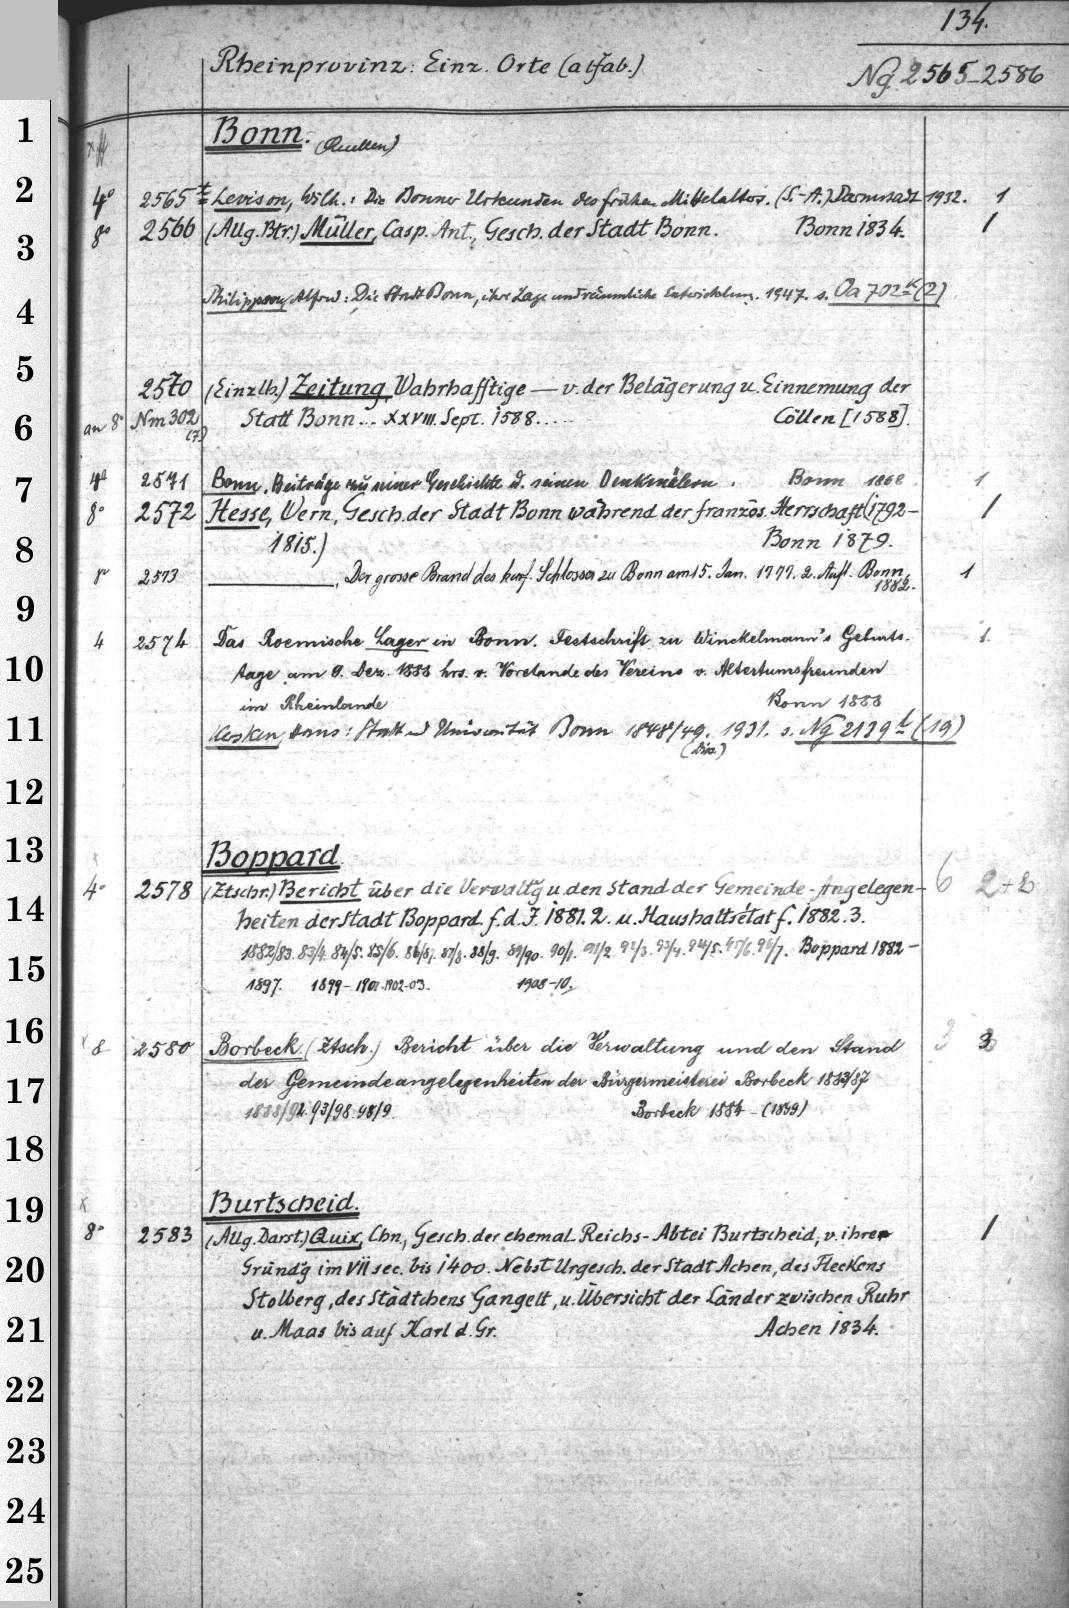 134.
Rheinprovinz: Einz. Orte (alfab.)
Ng 2565-2586
1
Bonn. (Quellen)
2
4° 2565 t Levison, Wilh.: Die Bonner Urkunden des frühen Mittelalters. (S.-A.) Darmstadt 1932. 1
8° 2566 (Allg. Btr.) Müller, Casp. Ant., Gesch. der Stadt Bonn. Bonn 1834. 1
3
Philippson, Alfred: Die Stadt Bonn, ihre Lage und räumliche Entwicklung. 1947. s. Oa 702 (2)
4
5
2570 (Einzlh.) Zeitung, Wahrhafftige — v. der Belägerung u. Einnemung der
an 8° Nm 302 (7) Statt Bonn... XXVIII. Sept. 1588..... Cöllen [1588].
6
4° 2571 Bonn. Beiträge zu seiner Geschichte u. seinen Denkmälern. Bonn 1868 1
7
8° 2572 Hesse, Wern., Gesch. der Stadt Bonn während der französ. Herrschaft (1792- 1
1815.) Bonn 1879.
8
8° 2573 ———, Der grosse Brand des kurf. Schlosses zu Bonn am 15. Jan. 1777. 2. Aufl. Bonn 1882. 1
9
4 2574 Das Roemische Lager in Bonn. Festschrift zu Winckelmann's Geburts- 1.
10
tage am 9. Dez. 1888 hrs. v. Vorstande des Vereins v. Altertumsfreunden
im Rheinlande Bonn 1888
11
Kersken, Hans: Stadt u Universität Bonn 1848/49. 1931. s. Ng 2139 t (19)
(Diss.)
12
13
Boppard
4° 2578 (Ztschr.) Bericht über die Verwaltg u. den Stand der Gemeinde-Angelegen- 6 2+2
14
heiten der Stadt Boppard f. d. J. 1881.2. u. Haushaltsétat f. 1882.3.
1882/83. 83/4. 84/5. 85/6. 86/87. 87/8. 88/9. 89/90. 90/1. 91/2. 92/3. 93/4. 94/5. 95/6. 96/7. Boppard 1882-
15
1897. 1899- 1901. 1902-03. 1908-10.
16
8 2580 Borbeck (Ztsch.) Bericht über die Verwaltung und den Stand 3 3
17
der Gemeindeangelegenheiten der Bürgermeisterei Borbeck 1883/87
1888/92. 93/98. 98/9. Borbeck 1884 - (1899)
18
19
Burtscheid.
8° 2583 (Allg. Darst.) Quix, Chn., Gesch. der ehemal. Reichs-Abtei Burtscheid, v. ihrer 1
20
Gründg im VII sec. bis 1400. Nebst Urgesch. der Stadt Achen, des Fleckens
Stolberg, des Städtchens Gangelt, u. Übersicht der Länder zwischen Ruhr
21
u. Maas bis auf Karl d. Gr. Achen 1834.
22
23
24
25